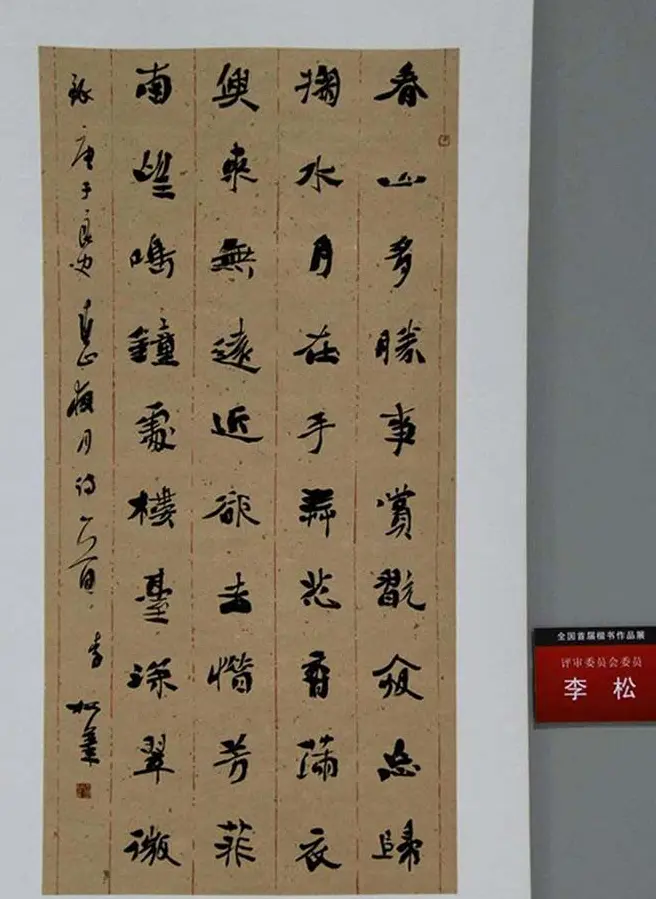 春山多勝事賞翫夜忘歸
掬水月在手弄花香滿衣
興來無遠近欲去惜芳菲
南望鳴鐘處樓臺深翠微
錄唐于良史春山夜月詩一首 李松筆
全国首届楷书作品展
评审委员会委员
李 松